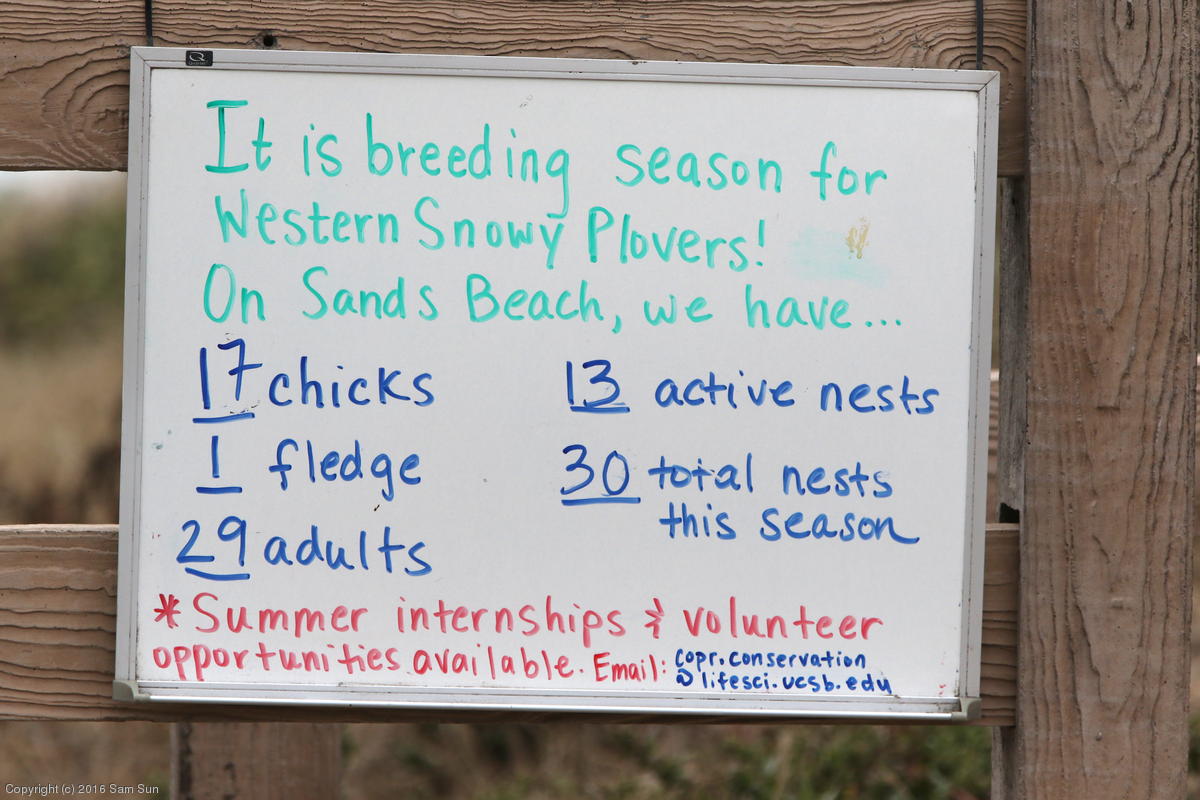 It is breeding season for
Western Snowy Plovers!
On Sands Beach, we have...
17 chicks
13 active nests
1 fledge
30 total nests
this season
29 adults
* Summer internships & volunteer
opportunities available. Email: copr.conservation
@lifesci.ucsb.edu
Copyright (c) 2016 Sam Sun